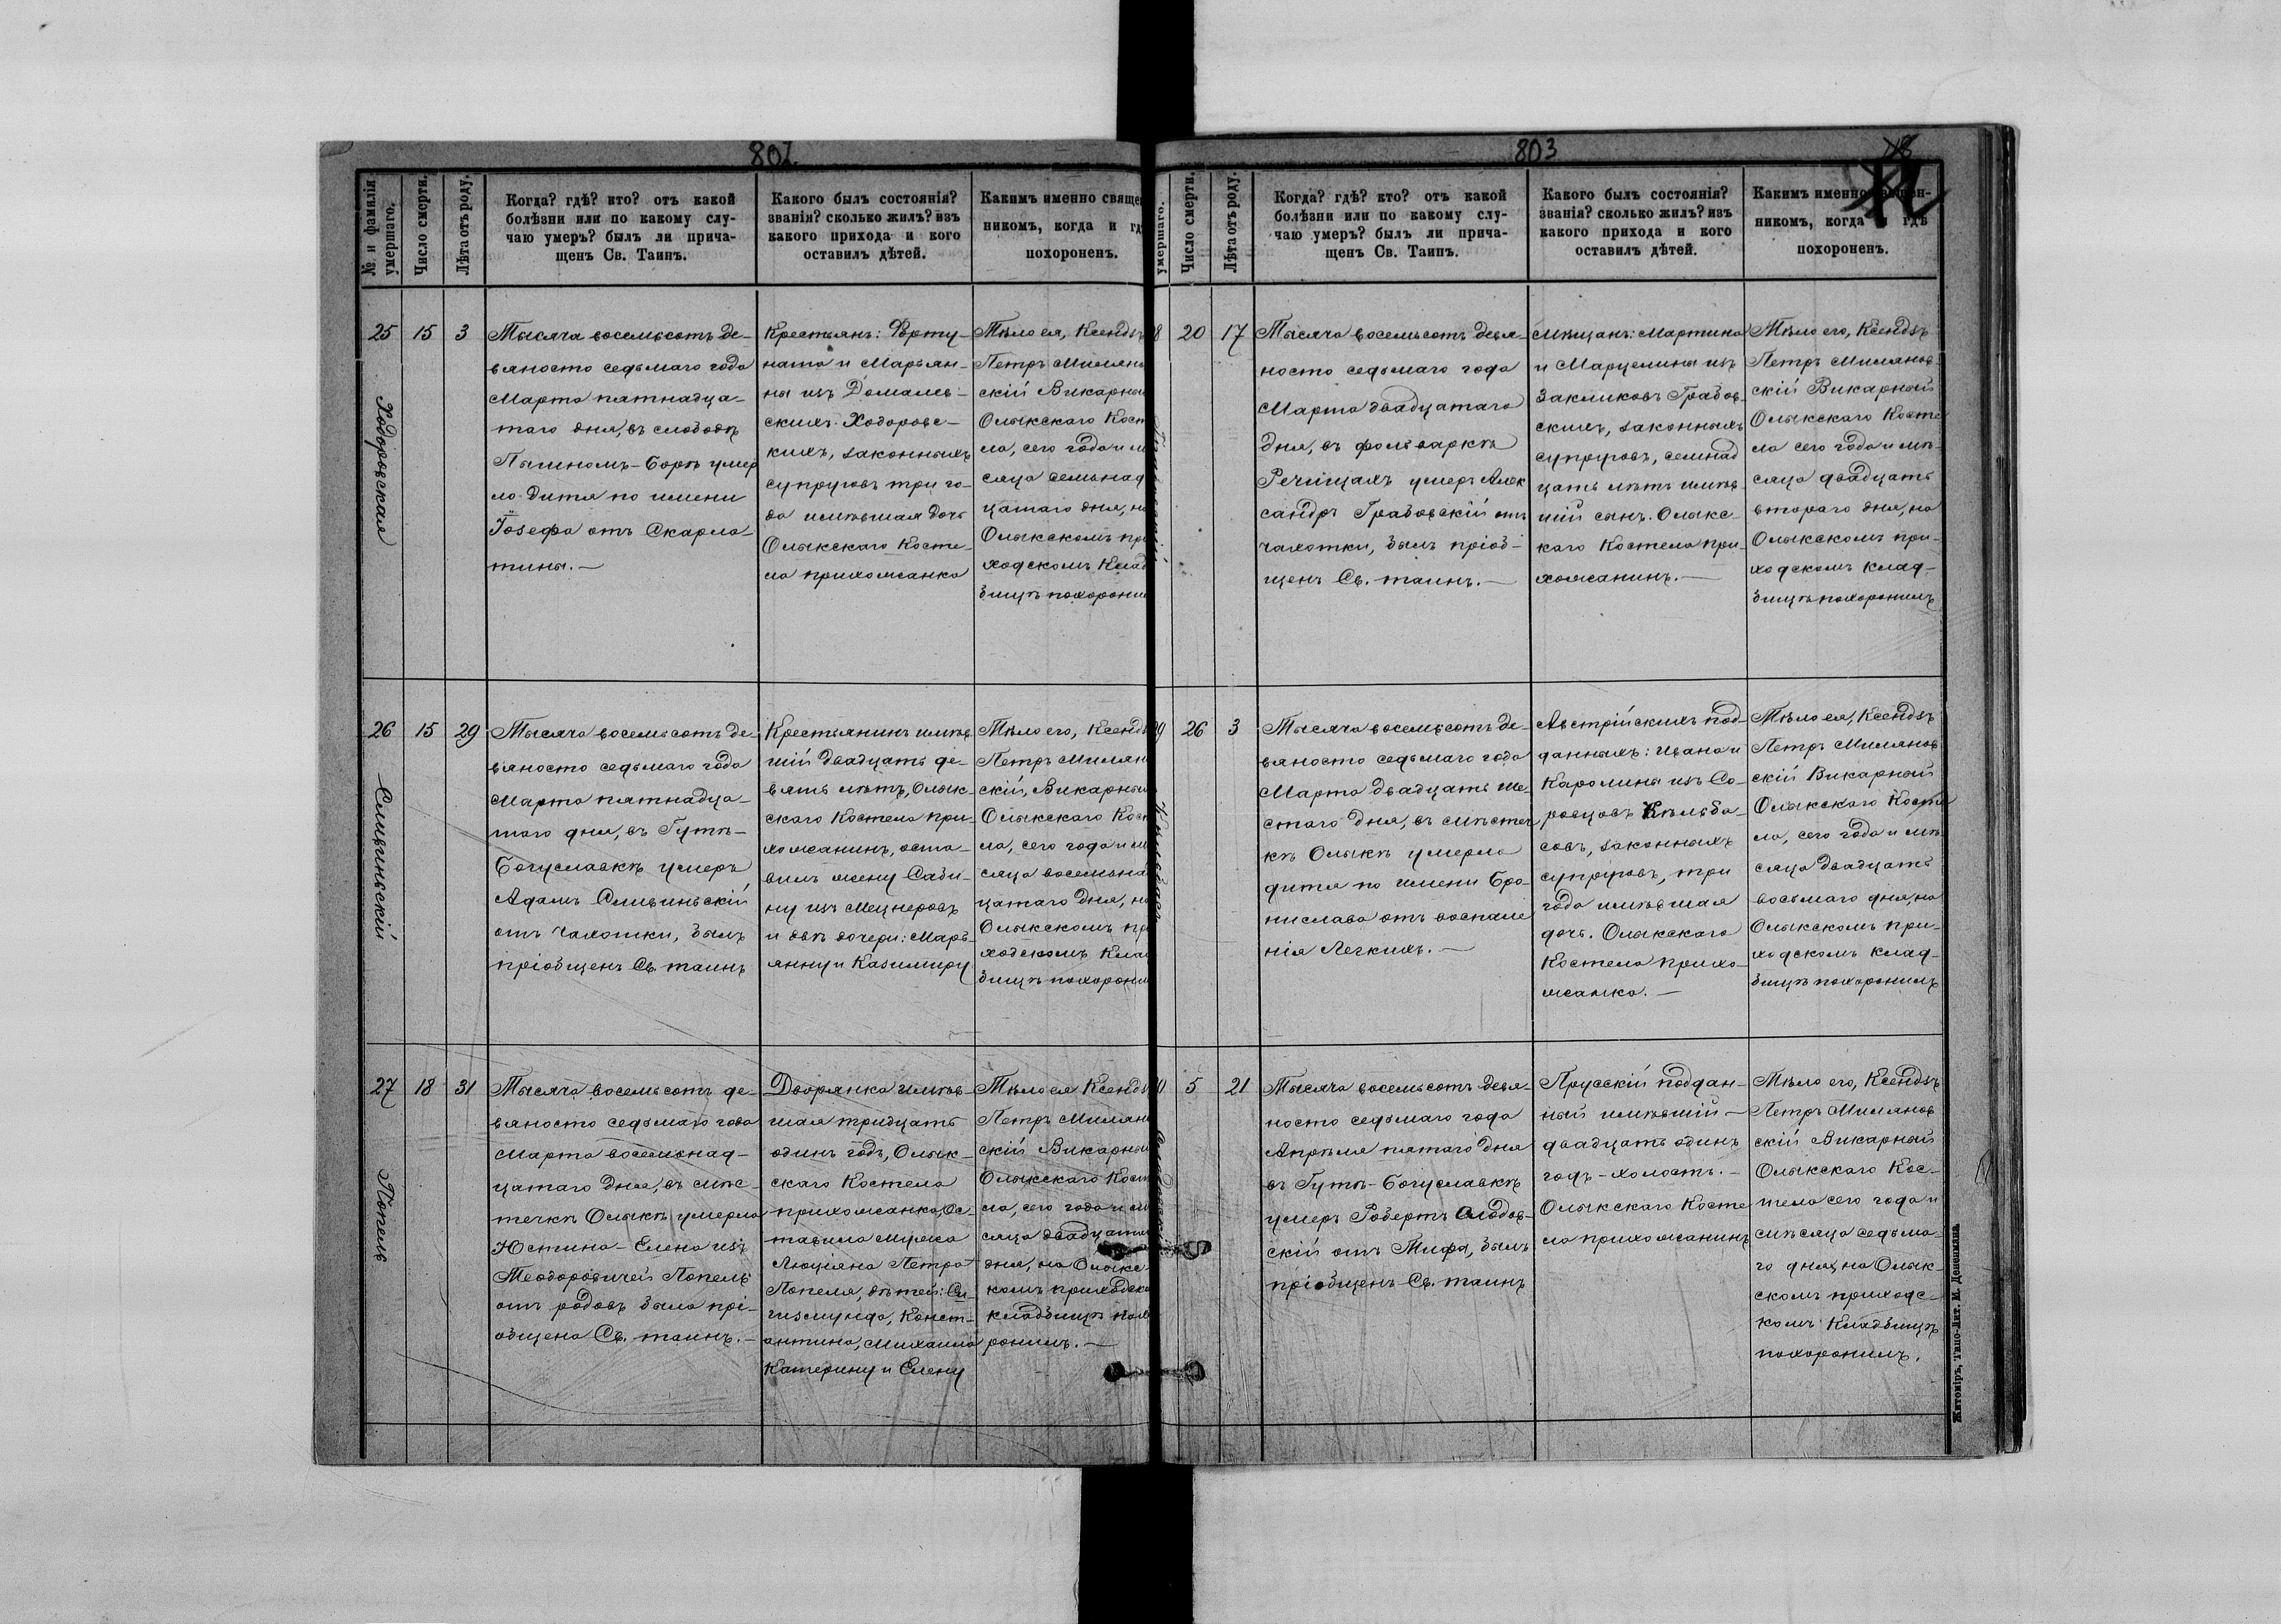 802
№. и фамилія
умершаго.
Число смерти.
Лѣта отъ роду.
Когда? гдѣ? кто? отъ какой
болѣзни или по какому слу-
чаю умеръ? былъ ли прича-
щенъ Св. Таинъ.
Какого былъ состоянія?
званія? сколько жилъ? изъ
какого прихода и кого
оставилъ дѣтей.
Какимъ именно свяще
никомъ, когда и гд
похороненъ.
25
Ходоровская
15
3
Тысяча восемьсотъ де-
вяносто седьмаго года
Марта пятнадца-
таго дня, въ слободѣ
умер
ло дитя по имени
Іозефа отъ Скарла-
тины.—
Крестьянъ: Форту-
ната и Марьян-
ны изъ Домаль-
скихъ Ходоровс-
кихъ, законныхъ
супруговъ три го-
да имѣвшая дочь
Олыкскаго Косте-
ла прихожанка
Тѣло ея, Ксендзъ
Петръ Милян
скій Викарный
Олыкскаго Кост
ла, сего года и м
сяца семьнад
цатаго дня, на
Олыкскомъ при
ходскомъ Клад
бищѣ похорони
26
15
29
Тысяча восемьсотъ де-
вяносто седьмаго года
Марта пятнадца-
таго дня, въ Гутѣ-
Богуславкѣ умеръ
Адамъ
отъ чахотки, былъ
пріобщенъ Св. таинъ
Крестьянинъ имѣв
шій двадцать де-
вять лѣтъ, Олык-
скаго Костела при-
хожанинъ, оста-
вилъ жену Саби-
ну изъ Мецнеровъ
и двѣ дочери: Марь-
янну и Казимиру
Тѣло его, Ксендз
Петръ Милян
скій, Викарный
Олыкскаго Кост
ла, сего года и м
сяца восемьна
цатаго дня, на
Олыкскомъ пр
ходскомъ Клад
бищѣ похорони
27
Попель
18
31
Тысяча восемьсотъ де-
вяносто седьмаго года
Марта восемьнад-
цатаго дня, въ мѣс-
течкѣ Олыкѣ умерла
Юстина-Елена изъ
Теодоровичей Попель
отъ родовъ была прі-
общена Св. таинъ.—
Дворянка имѣв
шая тридцать
одинъ годъ, Олык-
скаго Костела
прихожанка, Ос-
тавила мужа
Люціяна Петра
Попеля, дѣтей: Си
гизмунда, Конст-
антина, Михаила
Катерину и Елену
Тѣло ея Ксендз
Петръ Милян
скій Викарный
Олыкскаго Кост
ла, сего года и м
сяца двадцата
дня, на Олыкс
комъ приходско
кладбищѣ похо
ронилъ.—
803
умершаго.
Число смерти.
Лѣта отъ роду.
Когда? гдѣ? кто? отъ какой
болѣзни или по какому слу-
чаю умеръ? былъ ли прича-
щенъ Св. Таинъ.
Какого былъ состоянія?
званія? сколько жилъ? изъ
какого прихода и кого
оставилъ дѣтей.
Какимъ именно священ-
никомъ, когда и гдѣ
похороненъ.
8
20
17
Тысяча восемьсотъ девя-
носто седьмаго года
Марта двадцатаго
дня, въ фольваркѣ
Речищахъ умеръ Алек
сандръ Грабовскій отъ
чахотки, былъ пріоб-
щенъ Св. таинъ.—
Мѣщанъ: Мартина
и Марцелины изъ
Закликовъ Грабов-
скихъ, законныхъ
супруговъ, семнад
цать лѣтъ имѣв-
шій сынъ. Олыкс-
каго Костела при-
хожанинъ.—
Тѣло его, Ксендзъ
Петръ Милянов-
скій Викарный
Олыкскаго Косте
ла сего года и мѣ-
сяца двадцать
втораго дня, на
Олыкскомъ при-
ходскомъ клад-
бищѣ похоронилъ
9
26
3
Тысяча восемьсотъ де-
вяносто седьмаго года
Марта двадцать ше-
стаго дня, въ мѣстеч
кѣ Олыкѣ умерло
дитя по имени Бро-
нислава отъ воспале
нія Легкихъ.—
Австрійскихъ под-
данныхъ: Ивана и
Каролины изъ Со-
ровцовъ Кѣльба-
совъ, законныхъ
супруговъ, три
года имѣвшая
дочь. Олыкскаго
Костела прихо-
жанка.—
Тѣло ея, Ксендзъ
Петръ Милянов
скій Викарный
Олыкскаго Косте
ла, сего года и мѣ
сяца двадцать
восьмаго дня, на
Олыкскомъ при-
ходскомъ клад-
бищѣ похоронилъ
0
5
21
Тысяча восемьсотъ девя-
носто седьмаго года
Апрѣля пятаго дня
въ Гутѣ-Богуславкѣ
умеръ Робертъ
скій отъ Тифа, былъ
пріобщенъ Св. таинъ
Прусскій поддан-
ный имѣвшій—
двадцать одинъ
годъ-холостъ.—
Олыкскаго Косте
ла прихожанинъ
Тѣло его, Ксендзъ
Петръ Милянов
скій Викарный
Олыкскаго Кос-
тела сего года и
мѣсяца седьма-
го дня, на Олык-
скомъ приходс-
комъ Кладбищѣ
похоронилъ.
Житоміръ, Типо-Лит. М. Дененмана